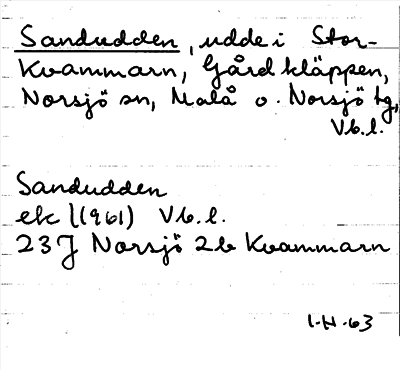 Sandudden, udde i Stor-
Kvammarn, Gårdkläppen,
Norsjö sn, Malå o. Norsjö tg,
Vb.l.
Sandudden
ek l(1961) Vb.l.
23J Norsjö 2b Kvammarn
I.H.63